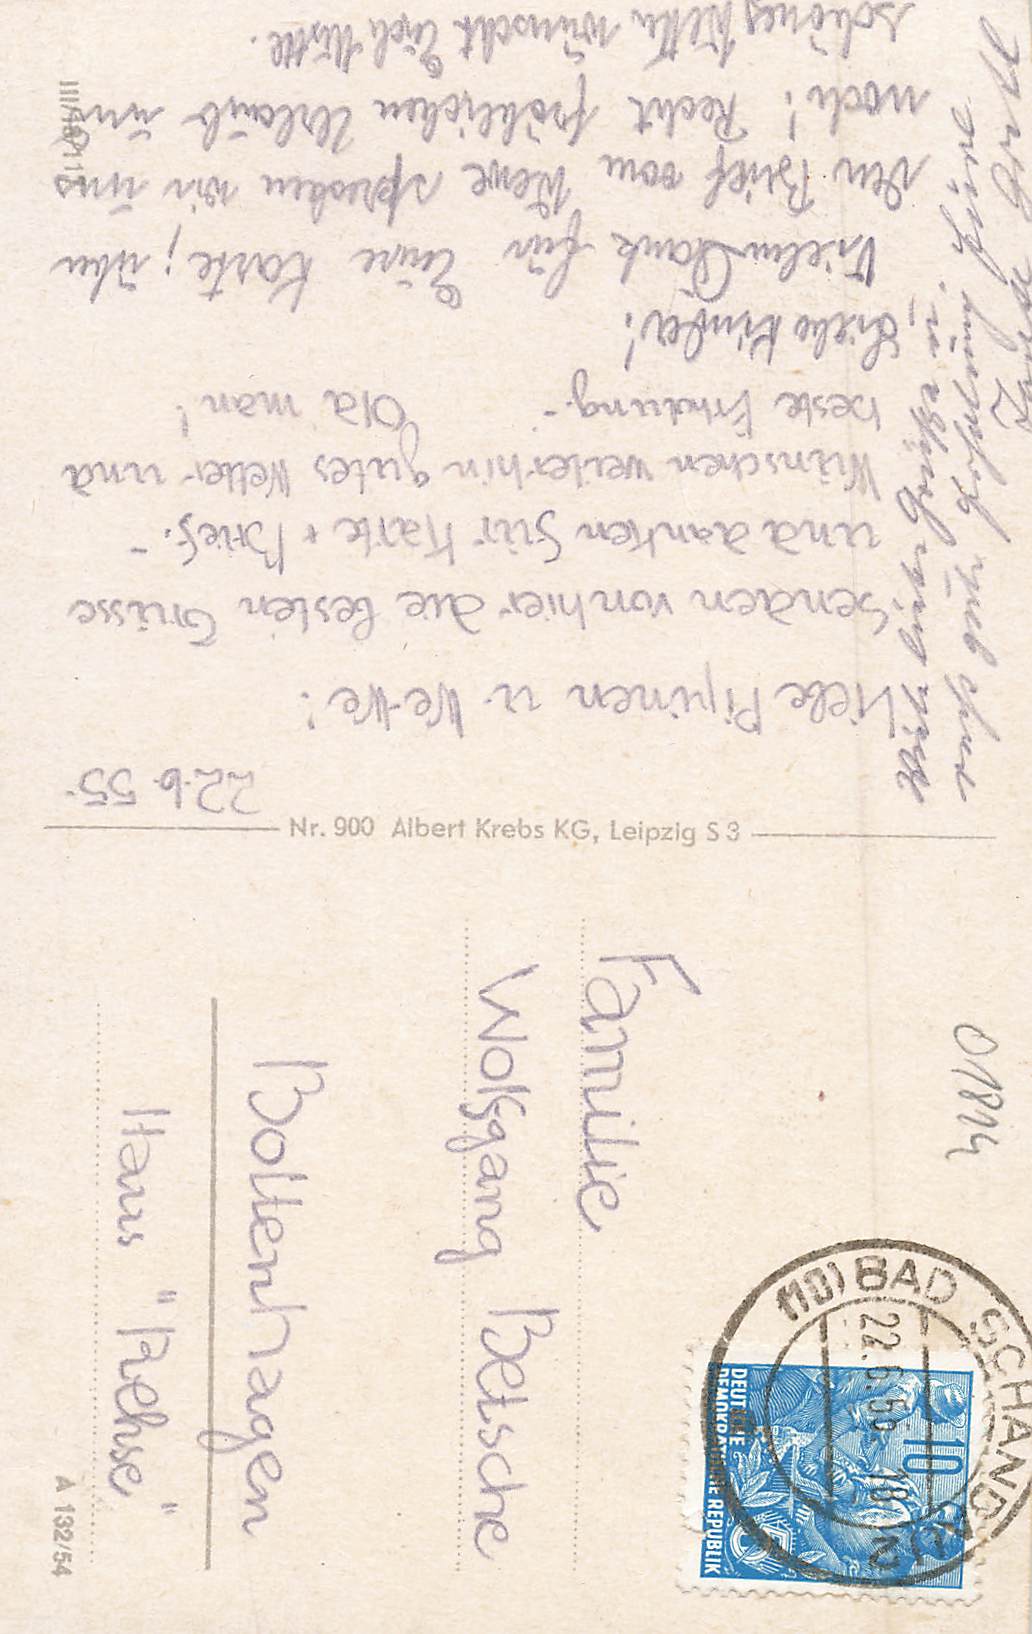 22.6.55.
Liebe Pipinen u. We-We!
Senden von hier die besten Grüsse
und danken für Karte + Brief.-
Wünschen weiterhin gutes Wetter und
beste Erholung.- Old man!
Liebe Kinder!
Vielen Dank für Eure Karte; über
den Brief vom Wewe sprechen wir uns
noch! Recht fröhlichen Urlaub und
schönes Wetter wünscht Euch
Nr. 900 Albert Krebs KG, Leipzig S 3
III/18/115
Familie
Wolfgang Betsche
Boltenhagen
Haus "Rehse"
01814
(10) BAD SCHANDAU 2
22.6.55 18
10
DEUTSCHE
DEMOKRATISCHE REPUBLIK
A 132/54